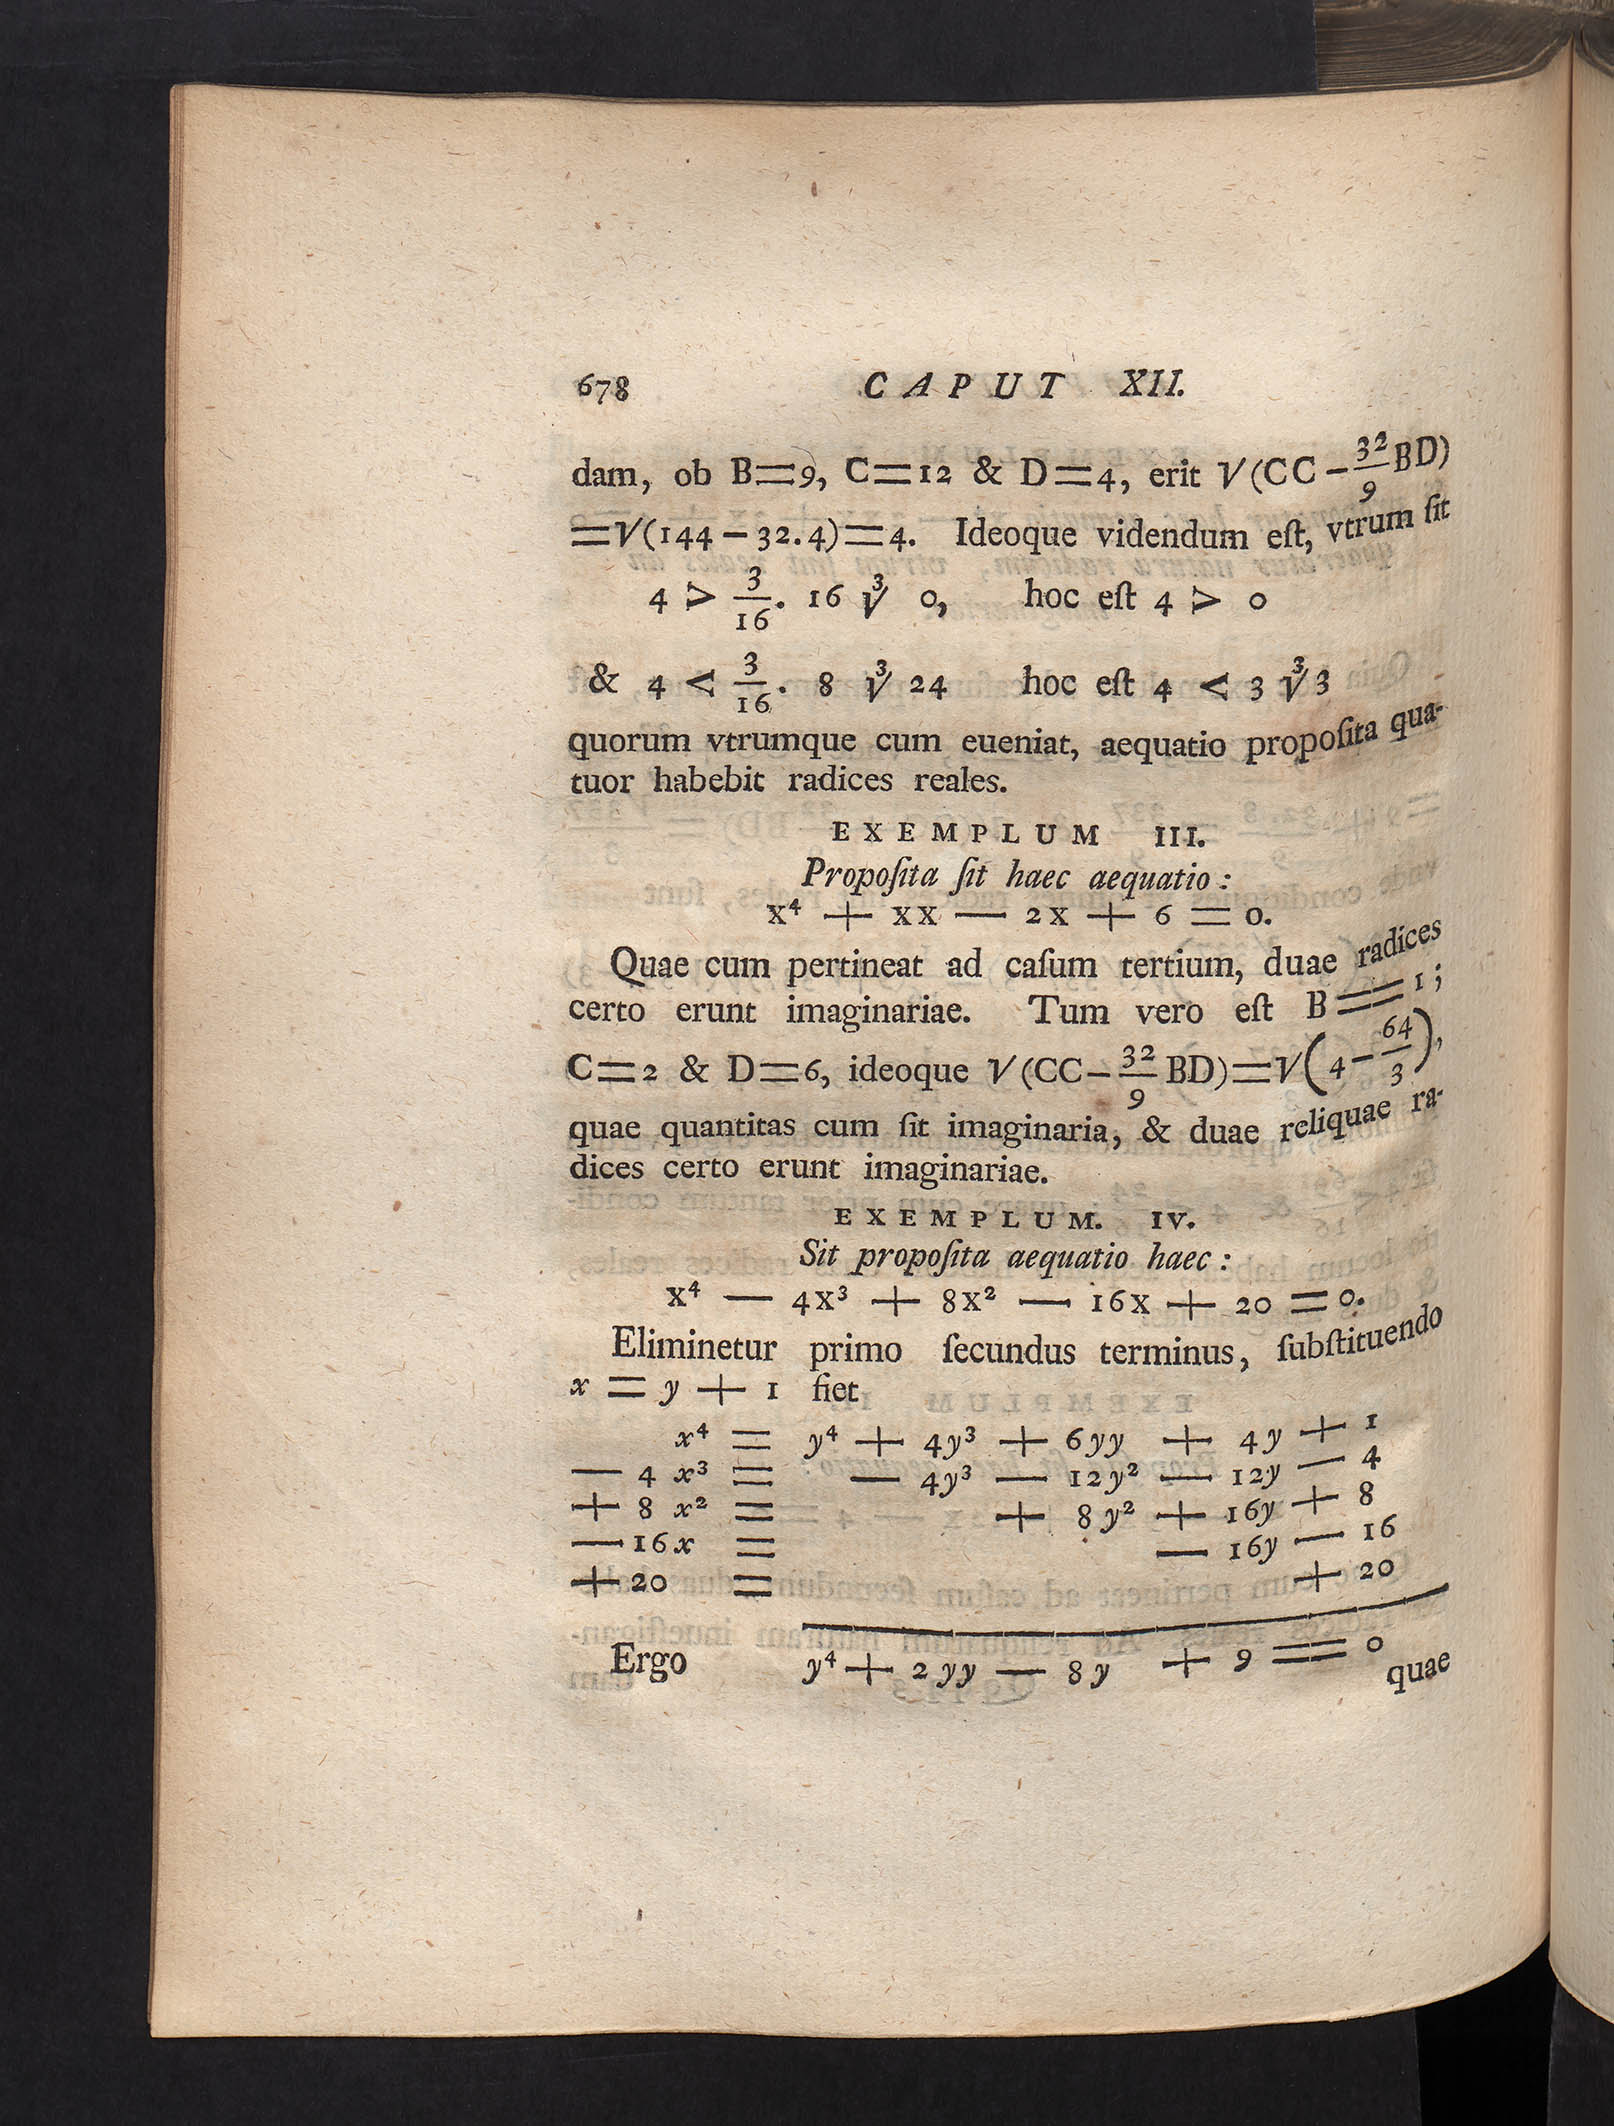 678 CAPUT XII.
dam, ob B=9, C=12 & D=4, erit √(CC-32/9 BD)
=√(144-32.4)=4. Ideoque videndum eſt, vtrum ſit
4 > 3/16. 16 ∛ 0, hoc eſt 4 > 0
& 4 < 3/16. 8 ∛ 24 hoc eſt 4 < 3 ∛3
quorum vtrumque cum eueniat, aequatio propoſita qua-
tuor habebit radices reales.
EXEMPLUM III.
Propoſita ſit haec aequatio:
x⁴ + xx — 2x + 6 = 0.
Quae cum pertineat ad caſum tertium, duae radices
certo erunt imaginariae. Tum vero eſt B==1;
C=2 & D=6, ideoque √(CC-32/9 BD)=√(4-64/3),
quae quantitas cum ſit imaginaria, & duae reliquae ra-
dices certo erunt imaginariae.
EXEMPLUM. IV.
Sit propoſita aequatio haec:
x⁴ — 4x³ + 8x² — 16x + 20 = 0.
Eliminetur primo ſecundus terminus, ſubſtituendo
x = y + 1 fiet
x⁴ = y⁴ + 4y³ + 6yy + 4y + 1
— 4 x³ = — 4y³ — 12y² — 12y — 4
+ 8 x² = + 8y² + 16y + 8
—16x = — 16y — 16
+20 = + 20
Ergo y⁴ + 2yy — 8y + 9 == 0
quae